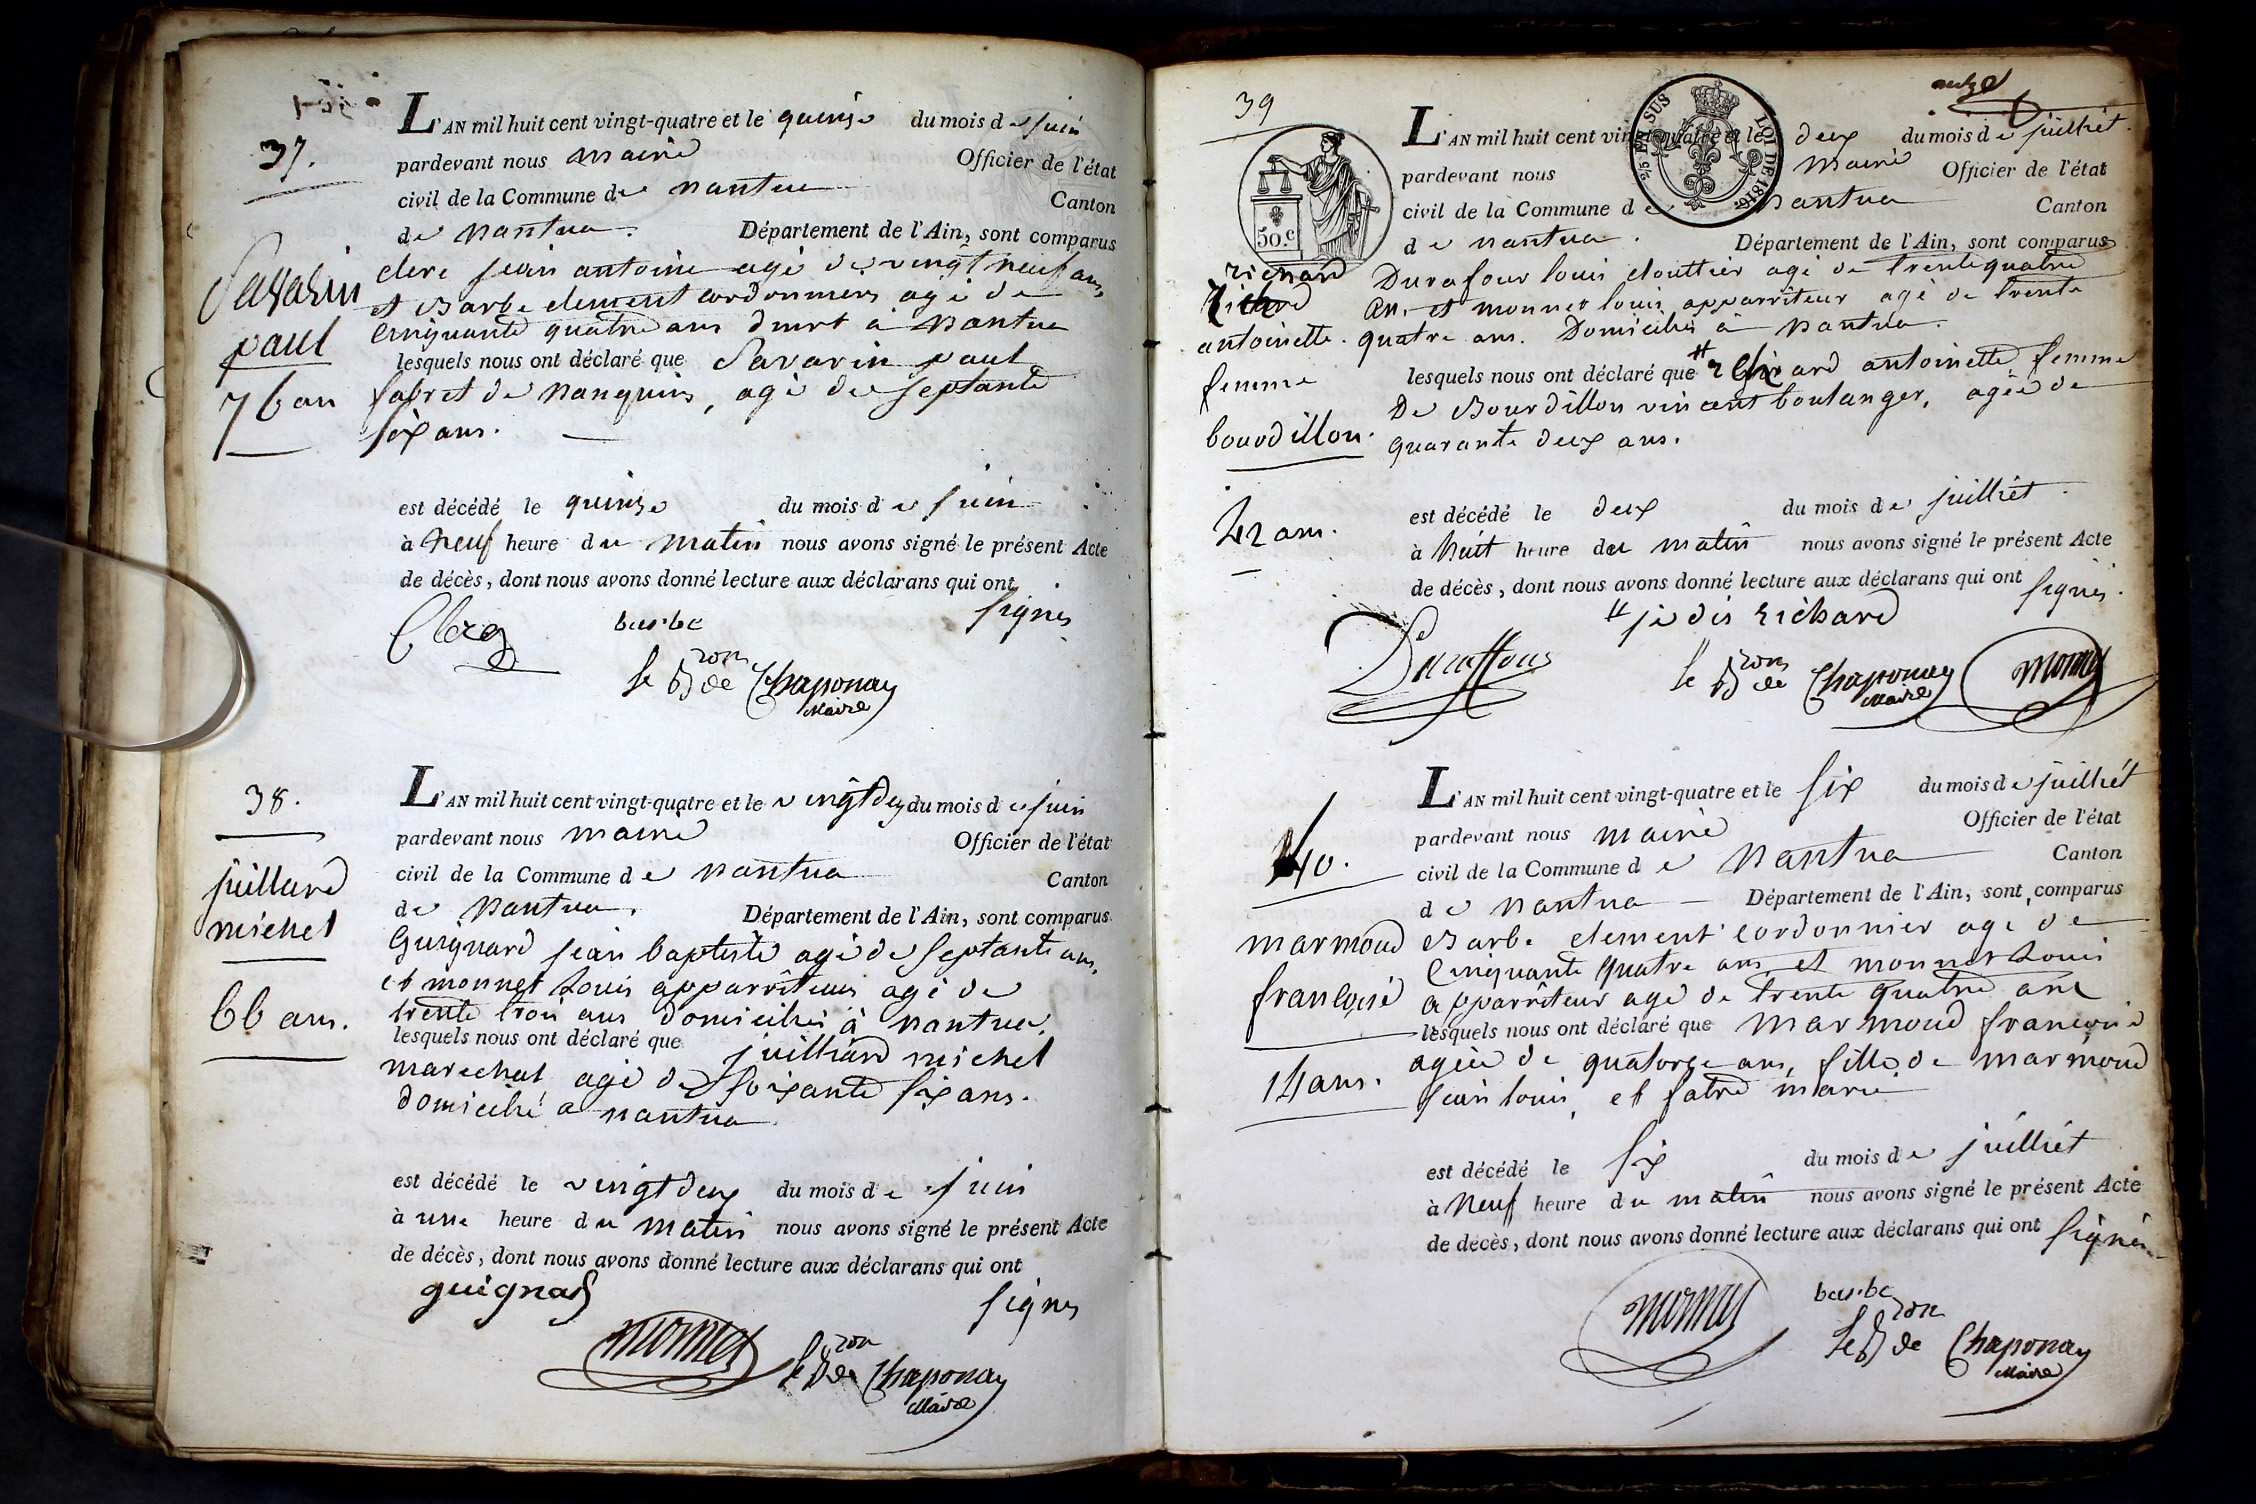 37.
Savarin
paul
76 an
L'AN mil huit cent vingt-quatre et le quinze du mois de juin
pardevant nous maire Officier de l'état
civil de la Commune de nantua Canton
de nantua. Département de l'Ain, sont comparus
clerc jean antoine agé de vingt neuf ans,
et Barbe clement cordonniers agé de
cinquante quatre ans dmrt à nantua
lesquels nous ont déclaré que Savarin paul
fabret de nanquins, agé de septante
six ans.
est décédé le quinze du mois de juin
à neuf heure du matin nous avons signé le présent Acte
de décès, dont nous avons donné lecture aux déclarans qui ont
signés
Clerc barbe
le Bron de Chaponay
Maire
38.
juillard
michel
66 ans.
L'AN mil huit cent vingt-quatre et le vingt deux du mois de juin
pardevant nous maire Officier de l'état
civil de la Commune de nantua Canton
de nantua. Département de l'Ain, sont comparus
Guignard jean baptiste agé de septante ans,
et monnet Louis apparîteur agé de
trente trois ans domiciliés à nantua.
lesquels nous ont déclaré que juilliard michel
marechal agé de soixante six ans.
domicilié a nantua
est décédé le vingt deux du mois de juin
à une heure du matin nous avons signé le présent Acte
de décès, dont nous avons donné lecture aux déclarans qui ont
signés
guignard
monnet le Bron de Chaponay
Maire
39
50.c
2/5 EN SUS LOI DE 1816.
richard
antoinette.
femme
bourdillon.
42 ans.
L'AN mil huit cent vingt-quatre et le deux du mois de juilliet.
pardevant nous maire Officier de l'état
civil de la Commune de nantua Canton
de nantua. Département de l'Ain, sont comparus
Durafour louis clouttier agé de trente quatre
an. et monnet louis apparrîteur agé de trente
quatre ans. Domiciliés à nantua.
lesquels nous ont déclaré que antoinette femme
De Bourdillon vincent boulanger, agée de
quarante deux ans.
est décédé le deux du mois de juilliet.
à huit heure du matin nous avons signé le présent Acte
de décès, dont nous avons donné lecture aux déclarans qui ont signés.
# je dis richard
Duraffour le Bron de Chaponay monnet
Maire
40.
marmoud
françoise
14 ans.
L'AN mil huit cent vingt-quatre et le six du mois de juilliet
pardevant nous maire Officier de l'état
civil de la Commune de nantua Canton
de nantua Département de l'Ain, sont comparus
Barbe clement cordonnier agé de
Cinquante quatre ans et monnet Louis
apparrîteur agé de trente quatre ans
lesquels nous ont déclaré que marmoud françoise
agée de quatorze ans, fille de marmoud
jean louis, et fabre marie
est décédé le six du mois de juilliet
à neuf heure du matin nous avons signé le présent Acte
de décès, dont nous avons donné lecture aux déclarans qui ont signés
monnet barbe
le Bron de Chaponay
Maire